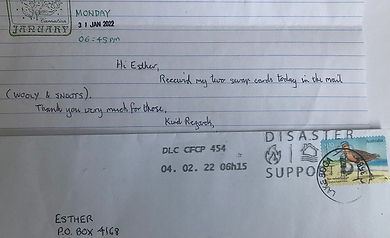 Carnation
JANUARY
MONDAY
31 JAN 2022
06:45pm
Hi Esther,
Received my two swap cards today in the mail
(WOOLY & SNOOTS).
Thank you very much for these,
Kind Regards,
DISASTER
SUPPO
DLC CFCP 454
04. 02. 22 06h15
Australia
ESTHER
P.O. BOX 4168